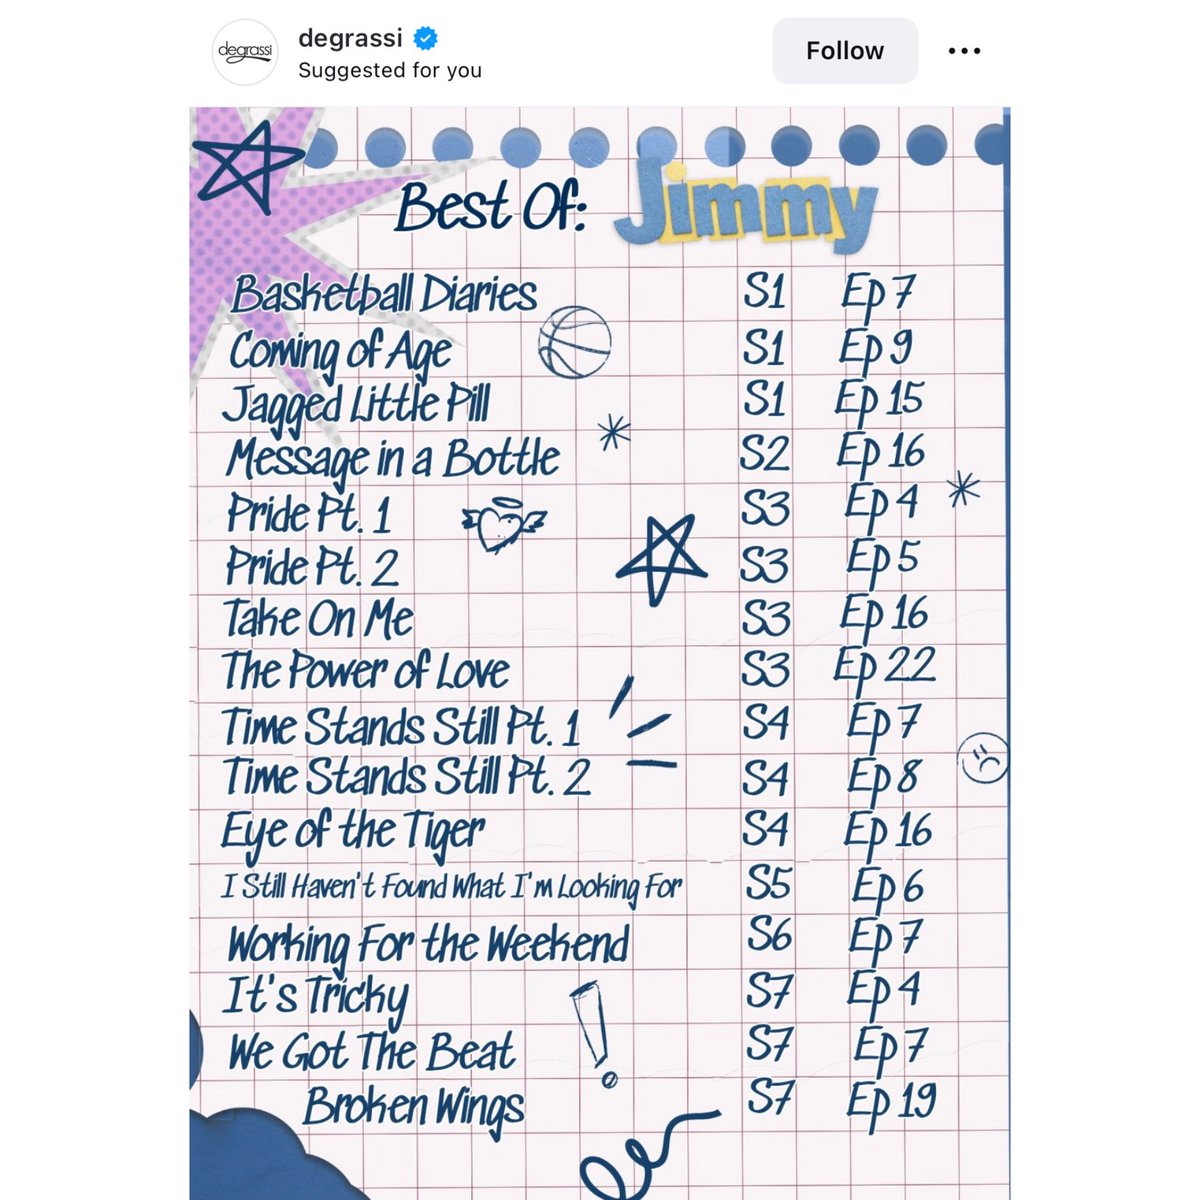 degrassi
degrassi
Suggested for you
Follow
Best Of: Jimmy
Basketball Diaries S1 Ep 7
Coming of Age S1 Ep 9
Jagged Little Pill S1 Ep 15
Message in a Bottle S2 Ep 16
Pride Pt. 1 S3 Ep 4
Pride Pt. 2 S3 Ep 5
Take On Me S3 Ep 16
The Power of Love S3 Ep 22
Time Stands Still Pt. 1 S4 Ep 7
Time Stands Still Pt. 2 S4 Ep 8
Eye of the Tiger S4 Ep 16
I Still Haven't Found What I'm Looking For S5 Ep 6
Working For the Weekend S6 Ep 7
It's Tricky S7 Ep 4
We Got The Beat S7 Ep 7
Broken Wings S7 Ep 19